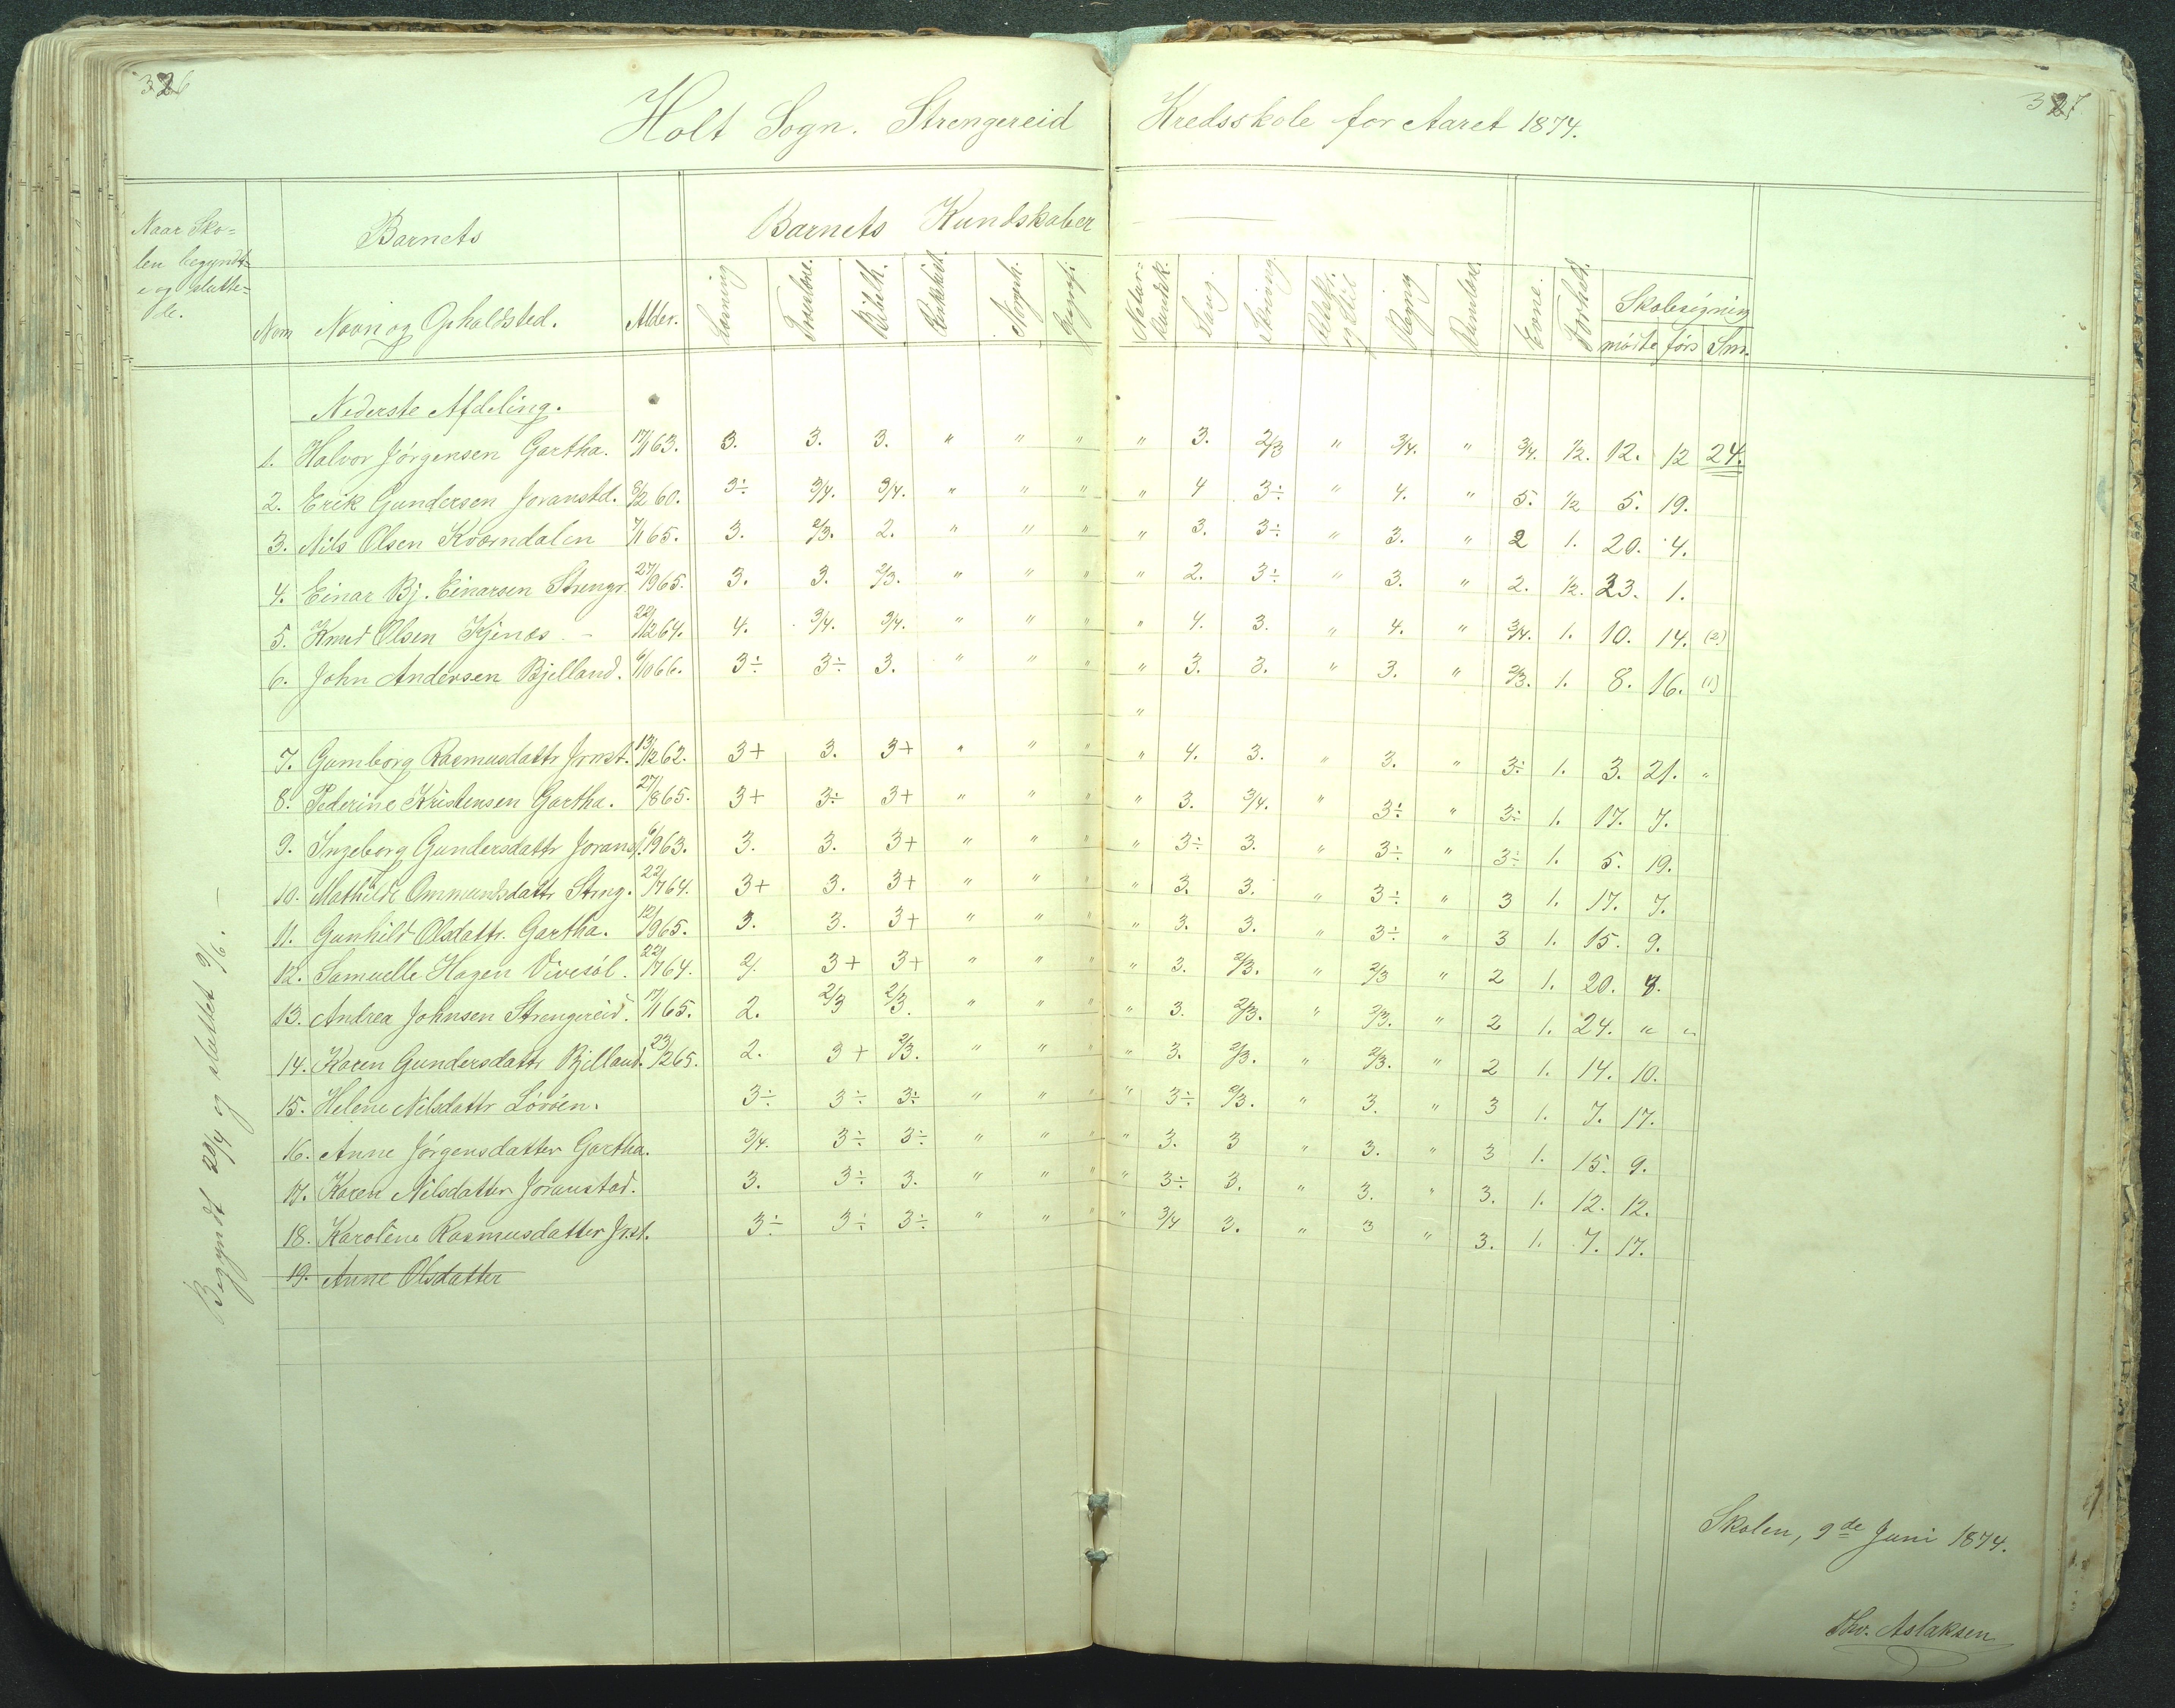 326
327
Holt Sogn. Strengereid Kredsskole for Aaret 1874.
Naar Sko=
len begyndt=
e og slutte=
de.
Barnets
Barnets Kundskaber
Num Navn og Opholdsted. Alder. Læsning Troeslære. Bibelh. Kirkehist. Norgesh. Geografi Natur=kundsk. Sang. Skrivning Retskr. og Stil Regning Rumlære. Evne. Forhold. Skolesøgning
mødte førs Sm.
Nederste Afdeling.
1. Halvor Jørgensen Gartha. 17/1 63. 3. 3. 3. " " " " 3. 2/3 " 3/4. " 3/4. 1/2. 12. 12 24.
2. Erik Gundersen Joranstd. 8/2 60. 3÷ 3/4. 3/4. " " " " 4 3÷ " 4. " 5. 1/2 5. 19.
3. Nils Olsen Kværndalen 7/1 65. 3. 2/3. 2. " " " " 3. 3÷ " 3. " 2 1. 20. 4.
4. Einar Bj. Einarsen Strengr. 27/9 65. 3. 3. 2/3. " " " " 2. 3÷ " 3. " 2. 1/2. 23. 1.
5. Knud Olsen Kjenæs - 22/12 64. 4. 3/4. 3/4. " " " " 4. 3. " 4. " 3/4. 1. 10. 14. (2)
6. John Andersen Bjelland. 6/10 66. 3÷ 3÷ 3. " " " " 3. 3. " 3. " 2/3. 1. 8. 16. (1)
"
7. Gumborg Rasmusdattr Jrnst. 13/12 62. 3+ 3. 3+ " " " " 4. 3. " 3. " 3÷ 1. 3. 21. "
8. Pederine Kristensen Gartha. 27/8 65. 3+ 3÷ 3+ " " " " 3. 3/4. " 3÷ " 3÷ 1. 17. 7.
9. Ingeborg Gundersdattr Joranst. 6/9 63. 3. 3. 3+ " " " " 3÷ 3. " 3÷ " 3÷ 1. 5. 19.
10. Mathilde Ommundsdattr Streng. 22/7 64. 3+ 3. 3+ " " " " 3. 3. " 3÷ " 3 1. 17. 7.
11. Gunhild Olsdattr. Gartha. 12/9 65. 3. 3. 3+ " " " " 3. 3. " 3÷ " 3 1. 15. 9.
12. Samuelle Hagen Vivesøl. 22/7 64. 2. 3+ 3+ " " " " 3. 2/3. " 2/3 " 2 1. 20. 4.
13. Andrea Johnsen Strengereid. 17/1 65. 2. 2/3 2/3. " " " " 3. 2/3. " 2/3. " 2 1. 24. " "
14. Karen Gundersdattr Bjelland. 23/12 65. 2. 3+ 2/3. " " " " 3. 2/3. " 2/3. " 2 1. 14. 10.
15. Helene Nilsdattr Løvøen. 3÷ 3÷ 3÷ " " " " 3÷ 2/3. " 3. " 3 1. 7. 17.
16. Anne Jørgensdatter Gartha. 3/4. 3÷ 3÷ " " " " 3. 3 " 3. " 3 1. 15. 9.
17. Karen Nilsdatter Joranstad. 3. 3÷ 3. " " " " 3÷ 3. " 3. " 3. 1. 12. 12.
18. Karoline Rasmusdatter Jrst. 3÷ 3÷ 3÷ " " " " 3/4 3. " 3 " 3. 1. 7. 17.
19. Anne Olsdatter
Begyndt 22/4 og sluttet 9/6. -
Skolen, 9de Juni 1874.
Thv. Aslaksen